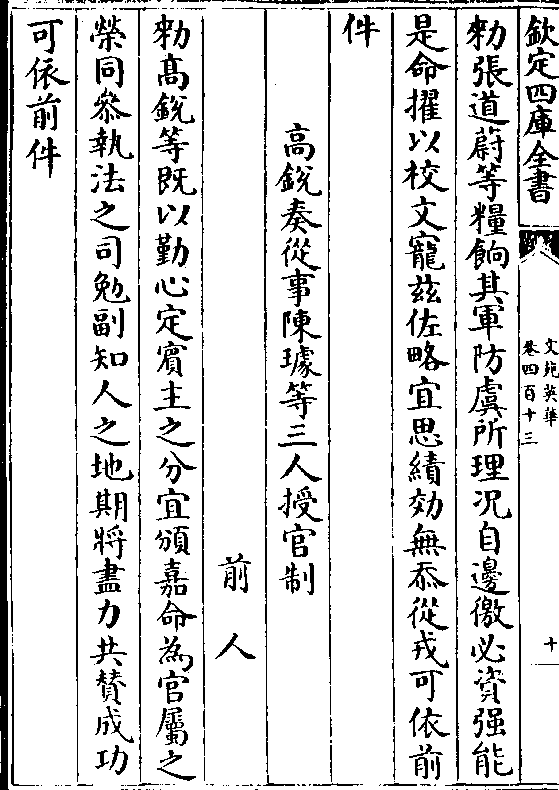 欽定四庫全書
文苑英華
卷四百十三
十
勑張道蔚等糧餉其軍防虞所理况自邊徼必資强能
是命擢以校文寵兹佐略宜思績効無忝從戎可依前
件
高銳奏從事陳璩等三人授官制
前人
勑髙銳等既以勤心定賓主之分宜頒嘉命為官屬之
榮同叅執法之司勉副知人之地期將盡力共賛成功
可依前件